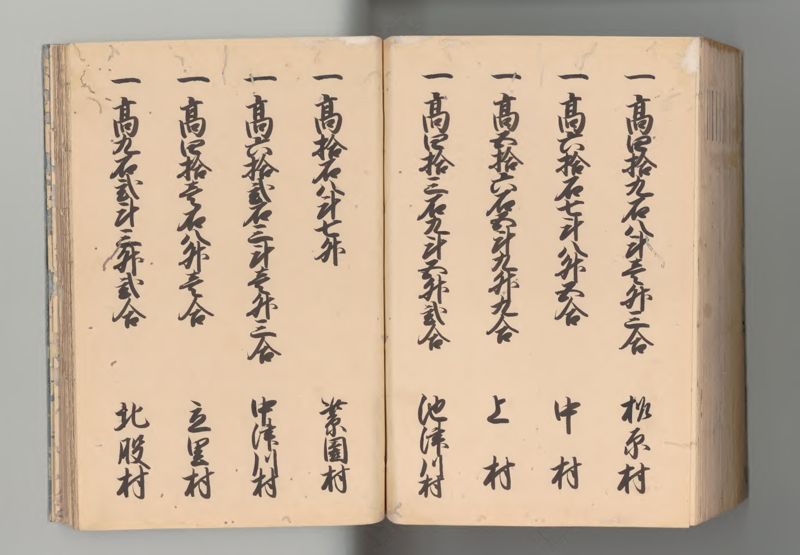 一 高四拾九石八斗壱升三合 椎原村
一 高六拾石七斗八升五合 中村
一 高五拾六石五斗九升九合 上村
一 高四拾三石九斗五升弐合 池津川村
一 高拾石八斗七升 紫園村
一 高六拾弐石三斗壱升三合 中津川村
一 高四拾壱石八升壱合 立里村
一 高九石弐斗三升弐合 北股村